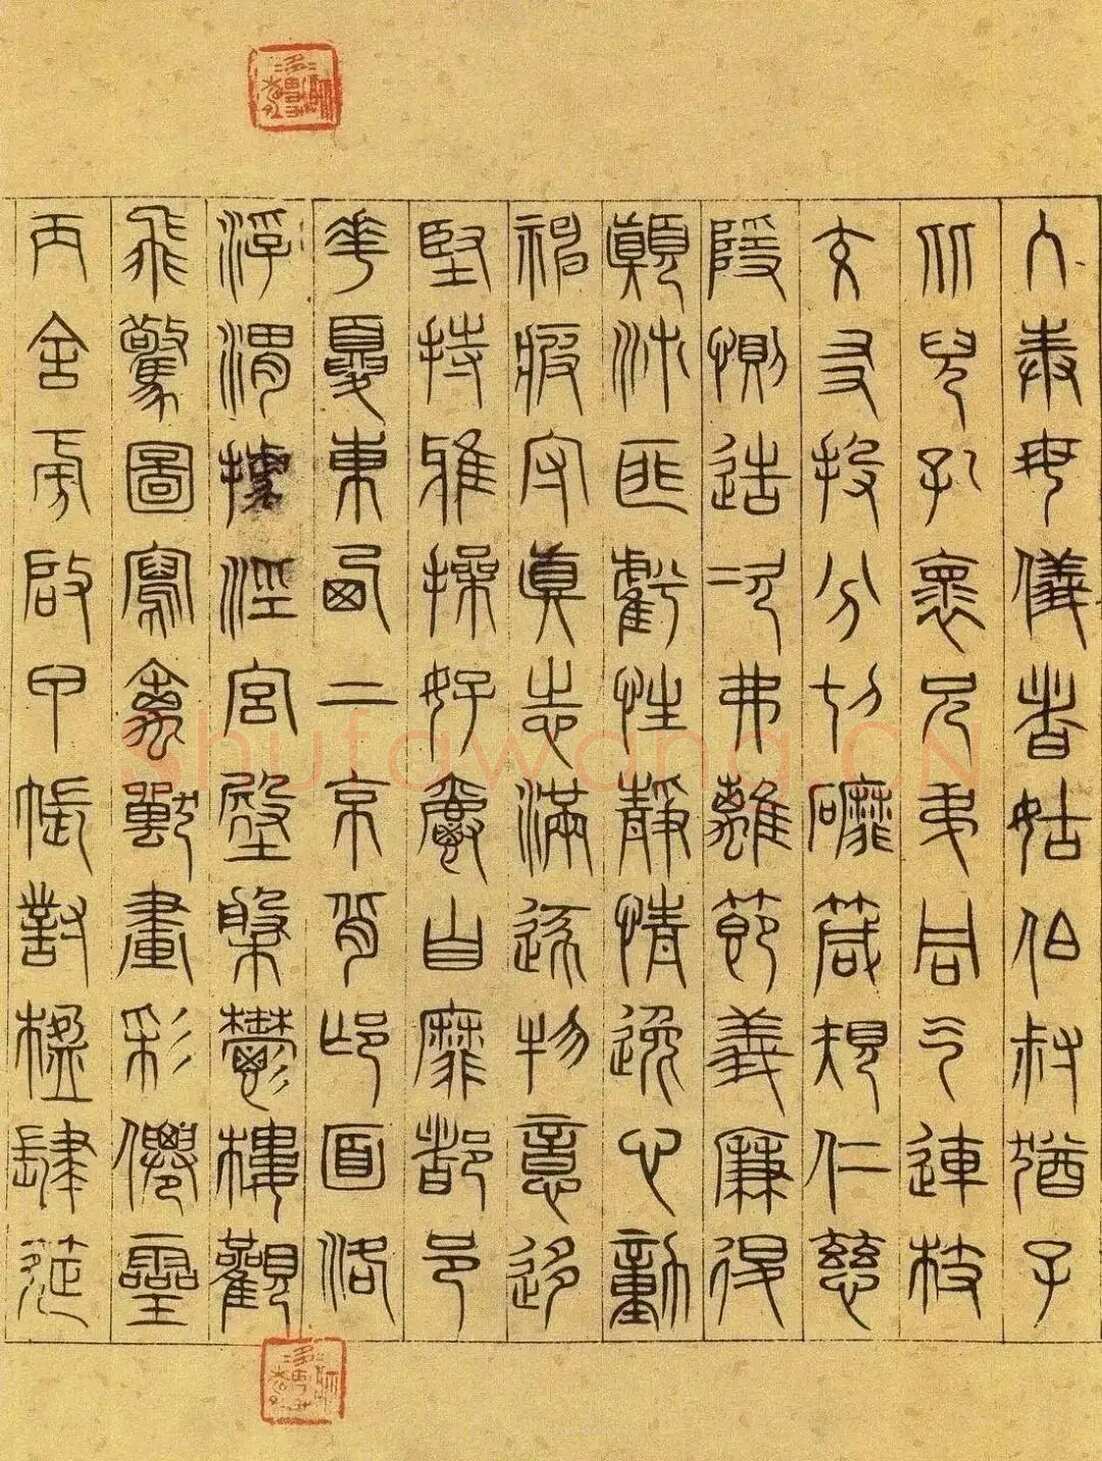 入奉母儀者姑伯叔猶子
比兒孔褱兄弟同气連枝
交友投分切礳箴規仁慈
隱惻造次弗離節義廉退
顛沛匪虧性靜情逸心動
神疲守真志滿逐物意移
堅持雅操好爵自靡都邑
華夏東西二京背邙面洛
浮渭據涇宮殿槃鬱樓觀
飛驚圖寫禽獸畫彩僊靈
丙舍旁啟甲帳對楹肆筵
shufawang.CN